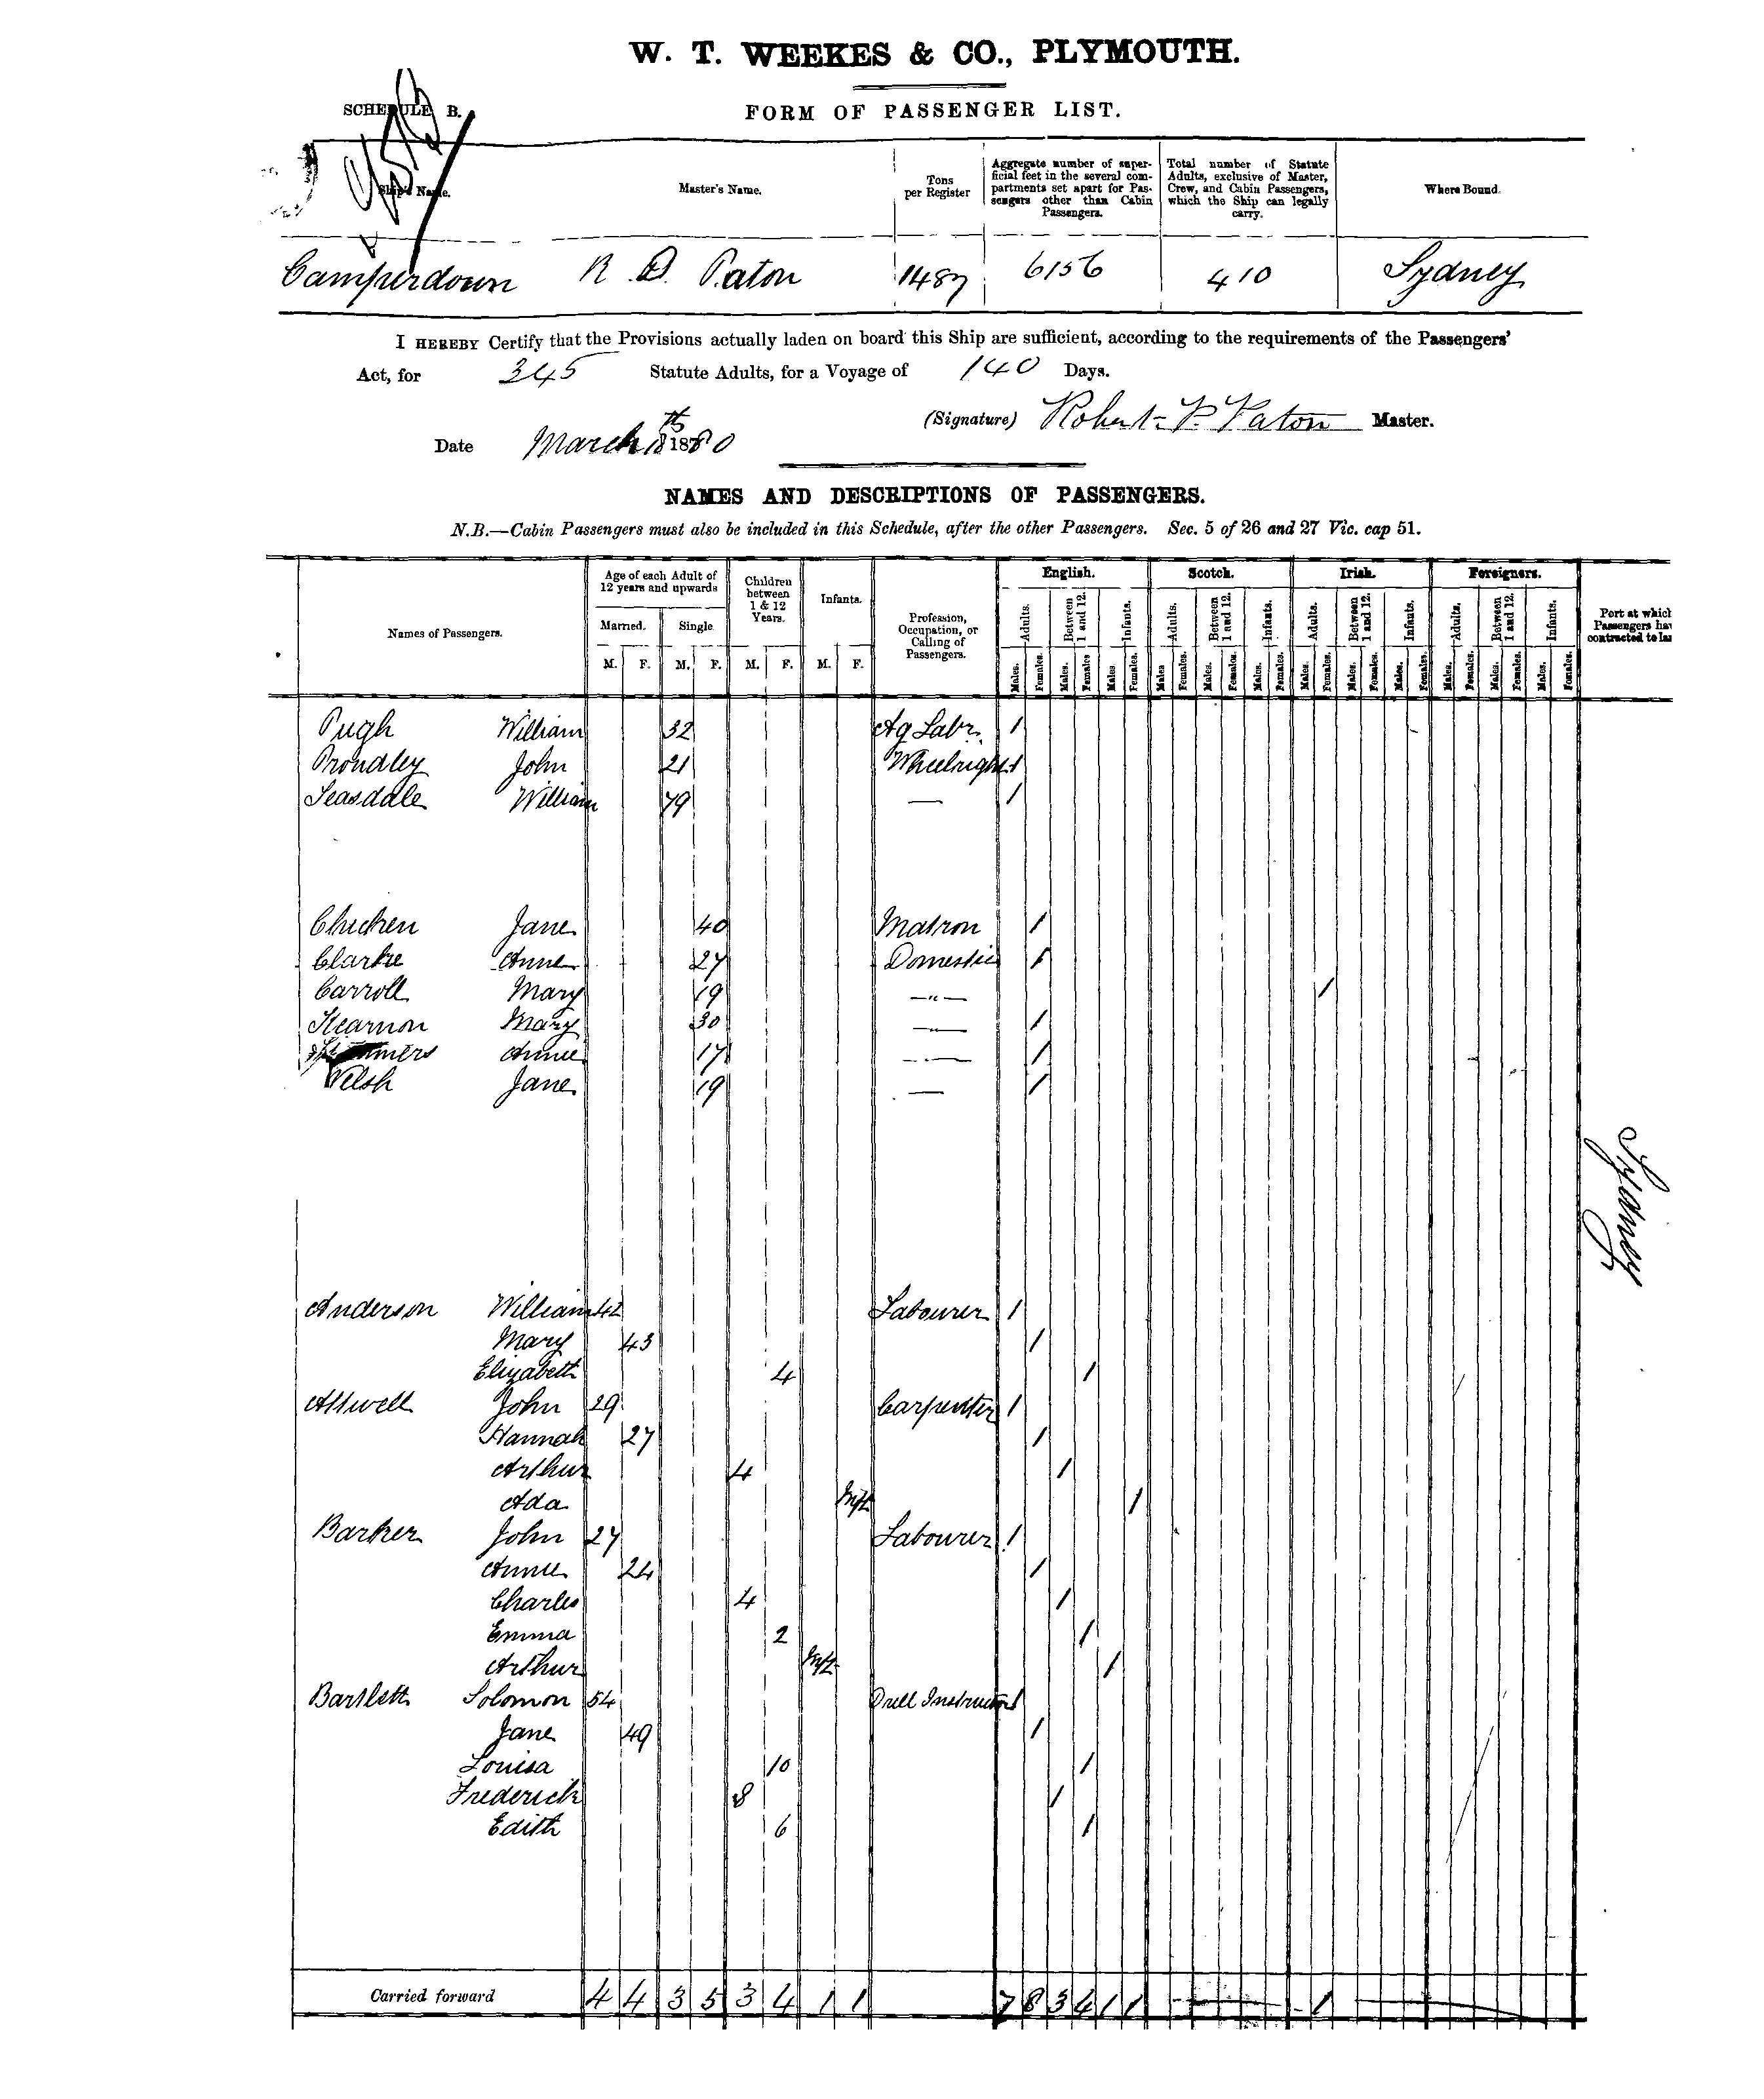 W. T. WEEKES & CO., PLYMOUTH.
SCHEDULE B.
FORM OF PASSENGER LIST.
Ship's Name. Master's Name. Tons per Register Aggregate number of superficial feet in the several compartments set apart for Passengers other than Cabin Passengers. Total number of Statute Adults, exclusive of Master, Crew, and Cabin Passengers, which the Ship can legally carry. Where Bound.
Camperdown R. D. Paton 1487 6156 410 Sydney
I HEREBY Certify that the Provisions actually laden on board this Ship are sufficient, according to the requirements of the Passengers'
Act, for 345 Statute Adults, for a Voyage of 140 Days.
(Signature) Robert P. Paton Master.
Date March 18th 1880
NAMES AND DESCRIPTIONS OF PASSENGERS.
N.B.—Cabin Passengers must also be included in this Schedule, after the other Passengers. Sec. 5 of 26 and 27 Vic. cap 51.
Names of Passengers. Age of each Adult of 12 years and upwards Children between 1 & 12 Years. Infants. Profession, Occupation, or Calling of Passengers. English. Scotch. Irish. Foreigners. Port at which Passengers have contracted to
Married. Single Adults. Between 1 and 12. Infants. Adults. Between 1 and 12. Infants. Adults. Between 1 and 12. Infants. Adults. Between 1 and 12. Infants.
M. F. M. F. M. F. M. F. Males. Females. Males. Females Males Females. Males Females. Males. Females. Males. Females. Males. Females. Males. Females. Males. Females. Males. Females. Males. Females. Males. Females.
Pugh William 32 Ag Labr. 1
Brondley John 21 Wheelright 1
Teasdale William 79 — 1
Chicken Jane 40 Matron 1
Clarke Anne 27 Domestic 1
Carroll Mary 19 —"— 1
Kearnon Mary 30 —"— 1
Annie 17 —"— 1
Welsh Jane 19 — 1
Sydney
Anderson William 42 Labourer 1
Mary 43 1
Elizabeth 4 1
Attwell John 29 Carpenter 1
Hannah 27 1
Arthur 4 1
Ada Inft 1
Barker John 27 Labourer 1
Annie 24 1
Charles 4 1
Emma 2 1
Arthur Inft 1
Bartlett Solomon 54 Drill Instructor 1
Jane 49 1
Louisa 10 1
Frederick 8 1
Edith 6 1
Carried forward 4 4 3 5 3 4 1 1 7 8 3 4 1 1 1